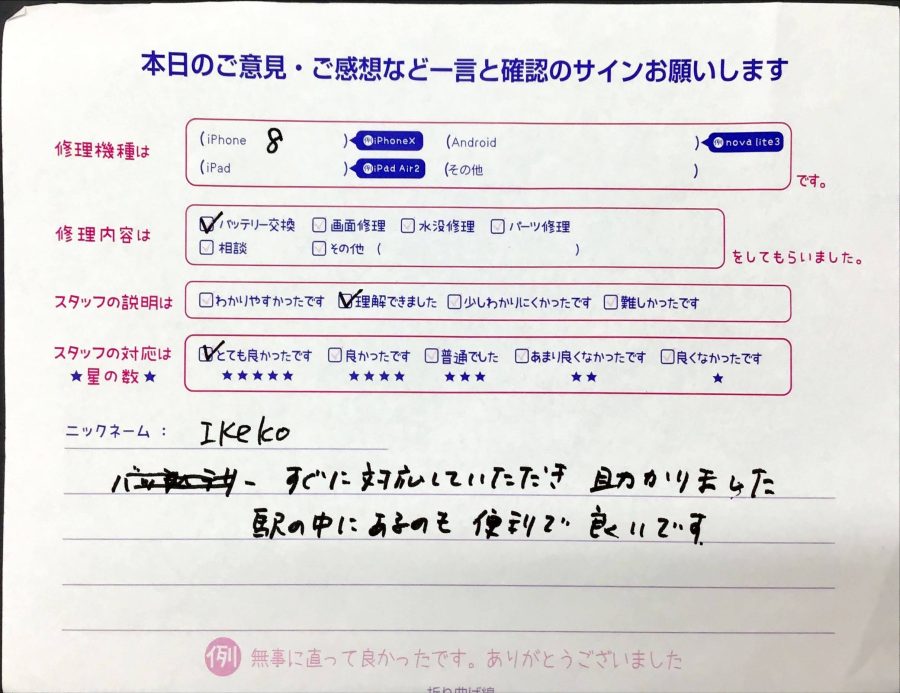 本日のご意見・ご感想など一言と確認のサインお願いします
修理機種は (iPhone 8 ) 例iPhoneX (Android ) 例nova lite3
(iPad ) 例iPad Air2 (その他 ) です。
修理内容は バッテリー交換 画面修理 水没修理 パーツ修理
相談 その他 ( ) をしてもらいました。
スタッフの説明は わかりやすかったです 理解できました 少しわかりにくかったです 難しかったです
スタッフの対応は とても良かったです 良かったです 普通でした あまり良くなかったです 良くなかったです
★星の数★ ★★★★★ ★★★★ ★★★ ★★ ★
ニックネーム: Ikeko
すぐに対応していただき 助かりました
駅の中にあるのも 便利で 良いです
例 無事に直って良かったです。ありがとうございました